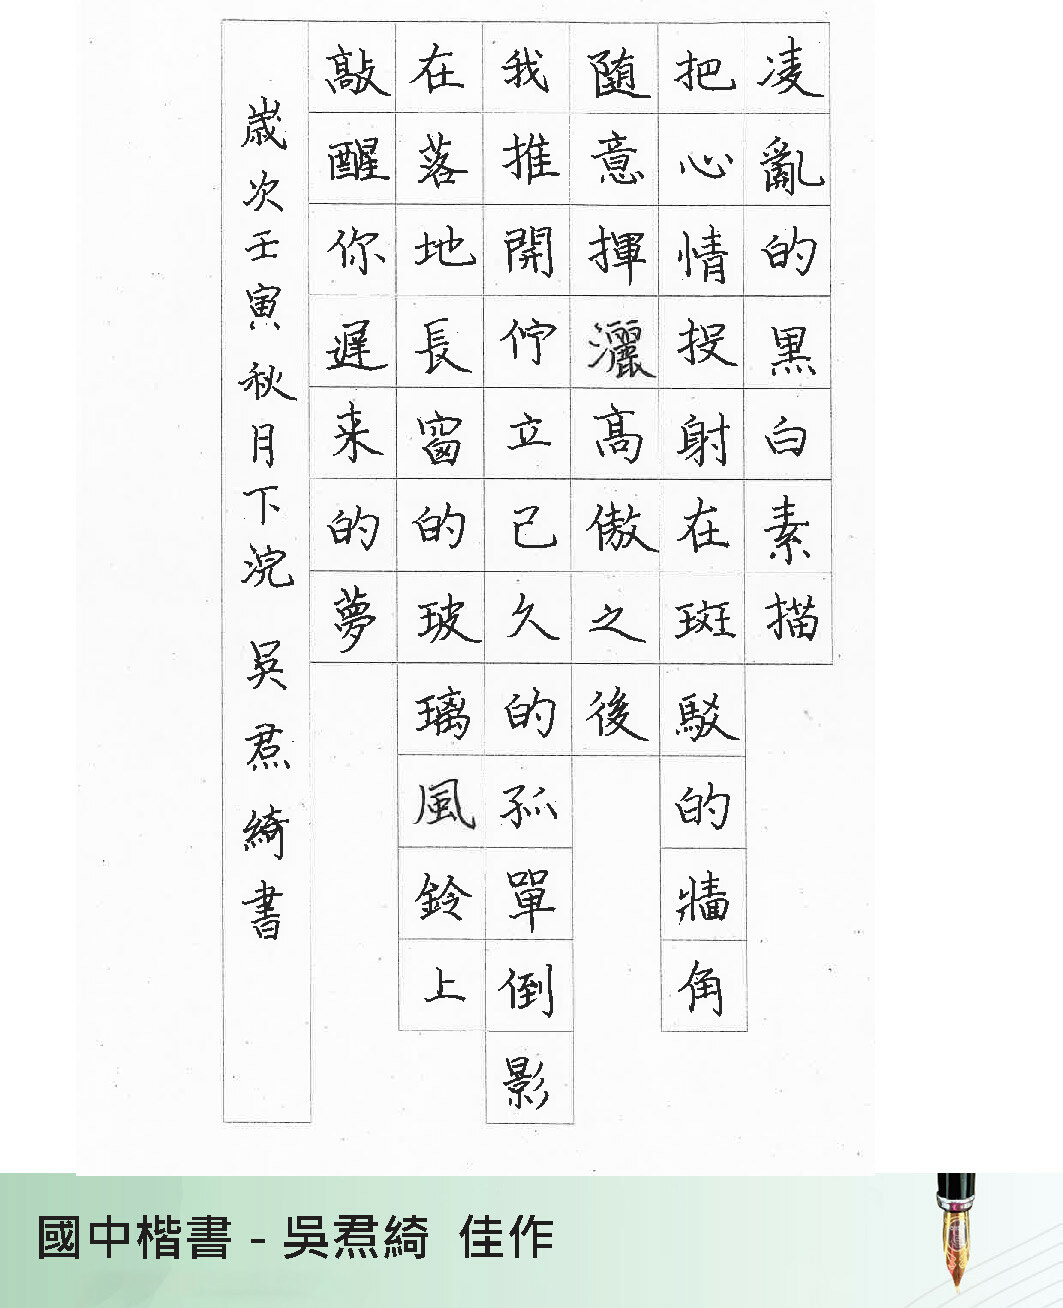 凌亂的黑白素描
把心情投射在斑駁的牆角
隨意揮灑高傲之後
我推開佇立已久的孤單倒影
在落地長窗的玻璃風鈴上
敲醒你遲来的夢
歲次壬寅秋月下浣 吳焄綺書
國中楷書 - 吳焄綺 佳作